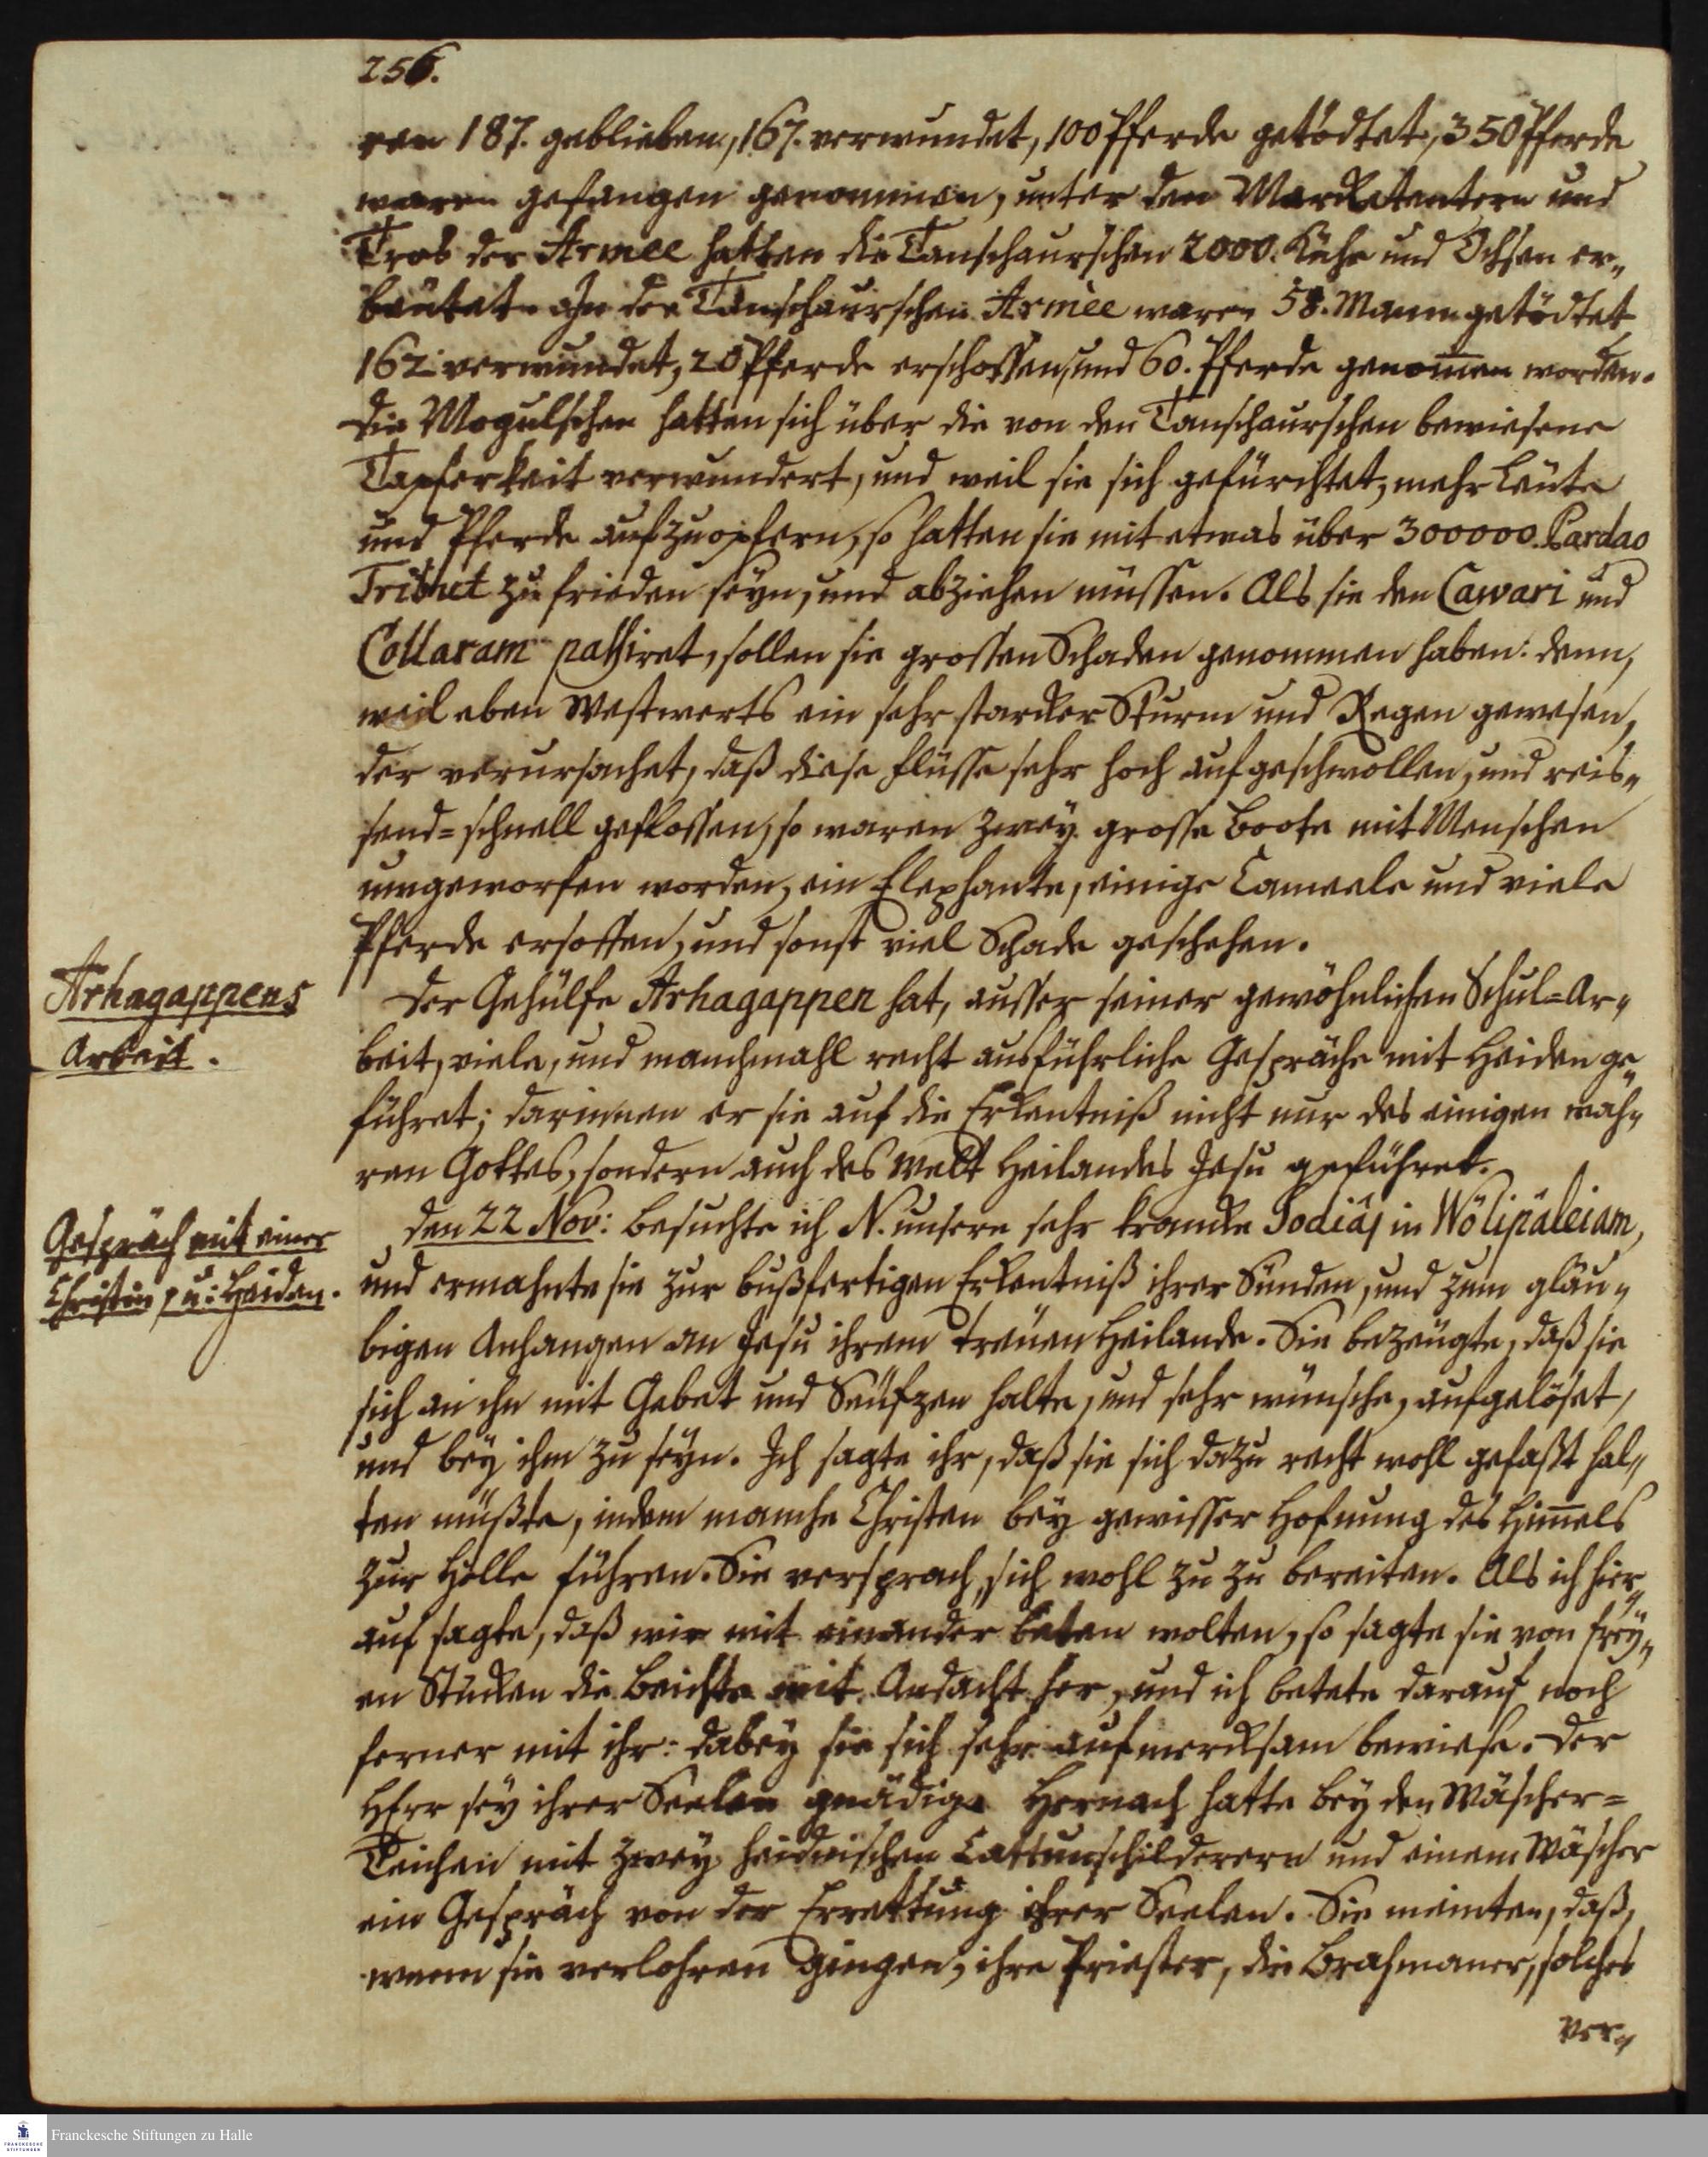 256.
ren 187. geblieben, 167. verwundet, 100 Pferde getödtet, 350 Pferde
waren gefangen genommen, unter den Marcketentern und
Tros der Armee hatten die Tanschaurschen 2000. Kühe und Ochsen er„
beutet. In der Tanschaurschen Armèe waren 58. Mann getödtet
162. verwundet, 20 Pferde erschossen, und 60. Pferde genom̄en worden.
Die Mogulschen hatten sich über die von den Tanschaurschen bewiesene
Tapferkeit verwundert, und weil sie sich gefürchtet, mehr Leute
und Pferde aufzuopfern, so hatten sie mit etwas über 300000. Pardao
Tribut zu frieden seyn, und abziehen müssen. Als sie den Cawari und
Collaram passiret, sollen sie grossen Schaden genommen haben: denn,
weil eben Westwerts ein sehr starcker Sturm und Regen gewesen,
der verursachet, daß diese Flüsse sehr hoch aufgeschwollen, und reis„
send=schnell geflossen, so waren zwey grosse Boote mit Menschen
umgeworfen worden, ein Elephante, einige Cameele und viele
Pferde ersoffen, und sonst viel Schade geschehen.
Arhagappens
Arbeit.
Der Gehülfe Arhagappen hat, ausser seiner gewöhnlichen Schul=Ar„
beit, viele, und manchmahl recht ausführliche Gespräche mit Heiden ge„
führet; darinnen er sie auf die Erkentniß nicht nur des einigen wah„
ren Gottes, sondern auch des Welt Heilandes Jesu geführet.
Gespräch mit einer
Christin, u: Heiden.
den 22 Nov: besuchte ich N. unsere sehr krancke Sodiäj in Wölipäleiam,
und ermahnte sie zur bußfertigen Erkentniß ihrer Sünden, und zum gläu„
bigen Anhangen an Jesu ihrem treuen Heilande. Sie bezeugte, daß sie
sich an ihn mit Gebet und Seufzen halte, und sehr wünsche, aufgelöset,
und bey ihm zu seyn. Ich sagte ihr, daß sie sich dazu recht wohl gefaßt hal„
ten müßte, indem manche Christen bey gewisser Hofnung des Him̄els
zur Hölle führen. Sie versprach, sich wohl zu zu bereiten. Als ich hier„
auf sagte, daß wir mit einander beten wolten, so sagte sie von frey„
en Stücken die Beichte mit Andacht her, und ich betete darauf noch
ferner mit ihr: dabey sie sich sehr aufmercksam bewiese. Der
HErr sey ihrer Seelen gnädig. Hernach hatte bey den Wäscher=
Teichen mit zwey heidnischen Cattunschilderern und einem Wäscher
ein Gespräch von der Errettung ihrer Seelen. Sie meinten, daß,
wenn sie verlohren gingen, ihre Priester, die Brahmaner, solches
ver„
Franckesche Stiftungen zu Halle